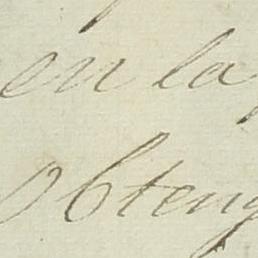 en la
obteng